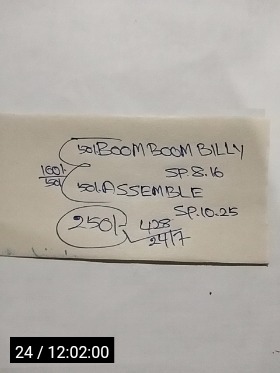 50/- BOOM BOOM BILLY
SP.8.16
100/-
50/-
50/- ASSEMBLE
SP.10.25
250/-
428
24/7
24 / 12:02:00